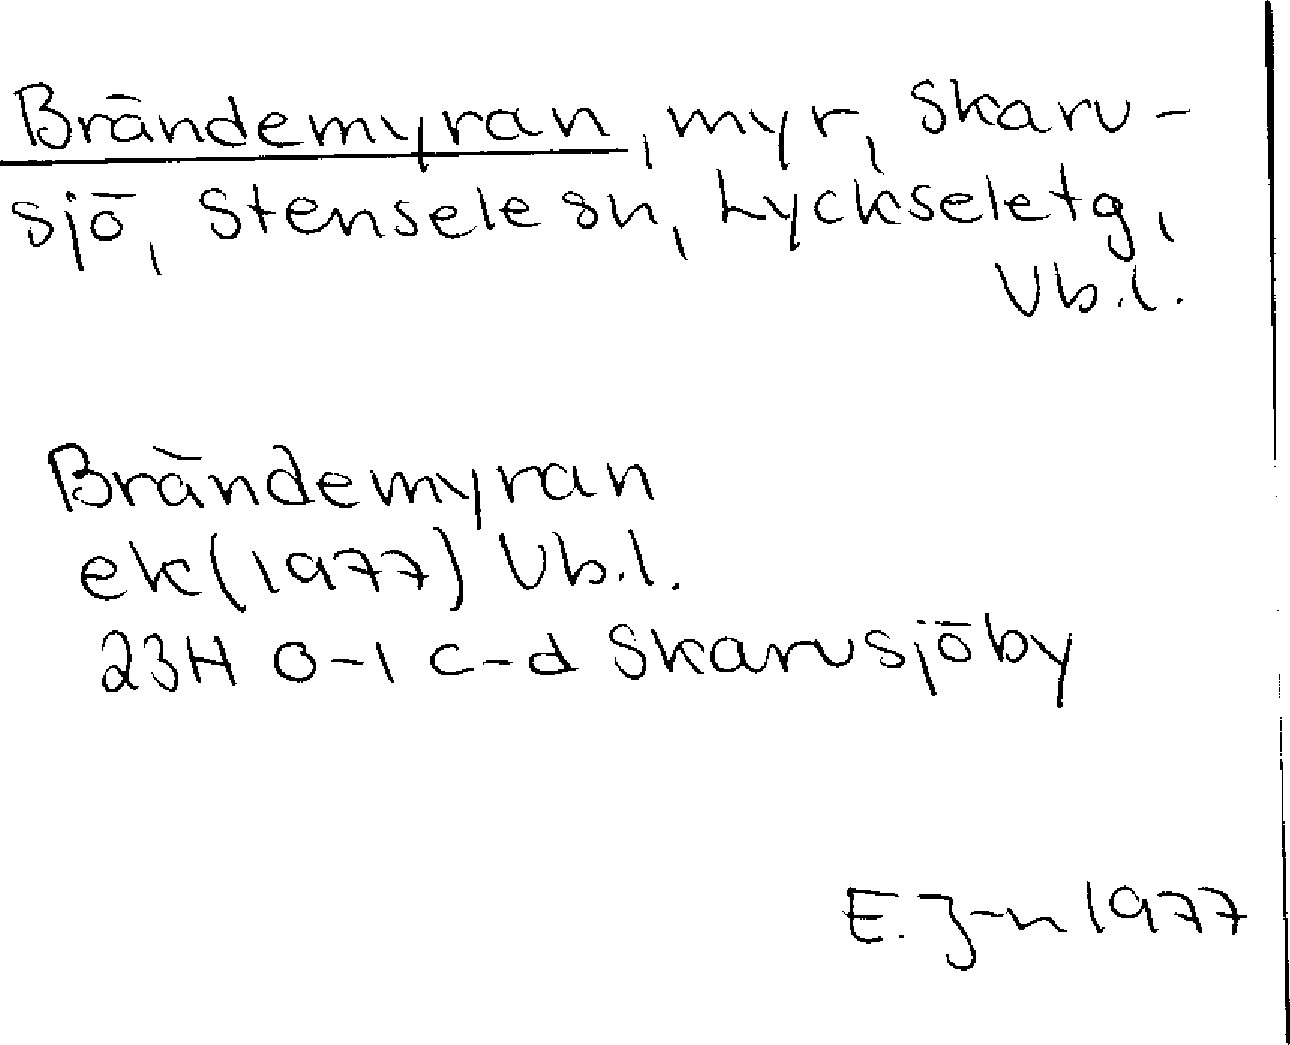 Brändemyran, myr, Skarv-
sjö, Stensele sn, Lyckseletg,
Vb.l.
Brändemyran
ek(1977) Vb.l.
23H 0-1 c-d Skarvsjöby
E. J-n 1977